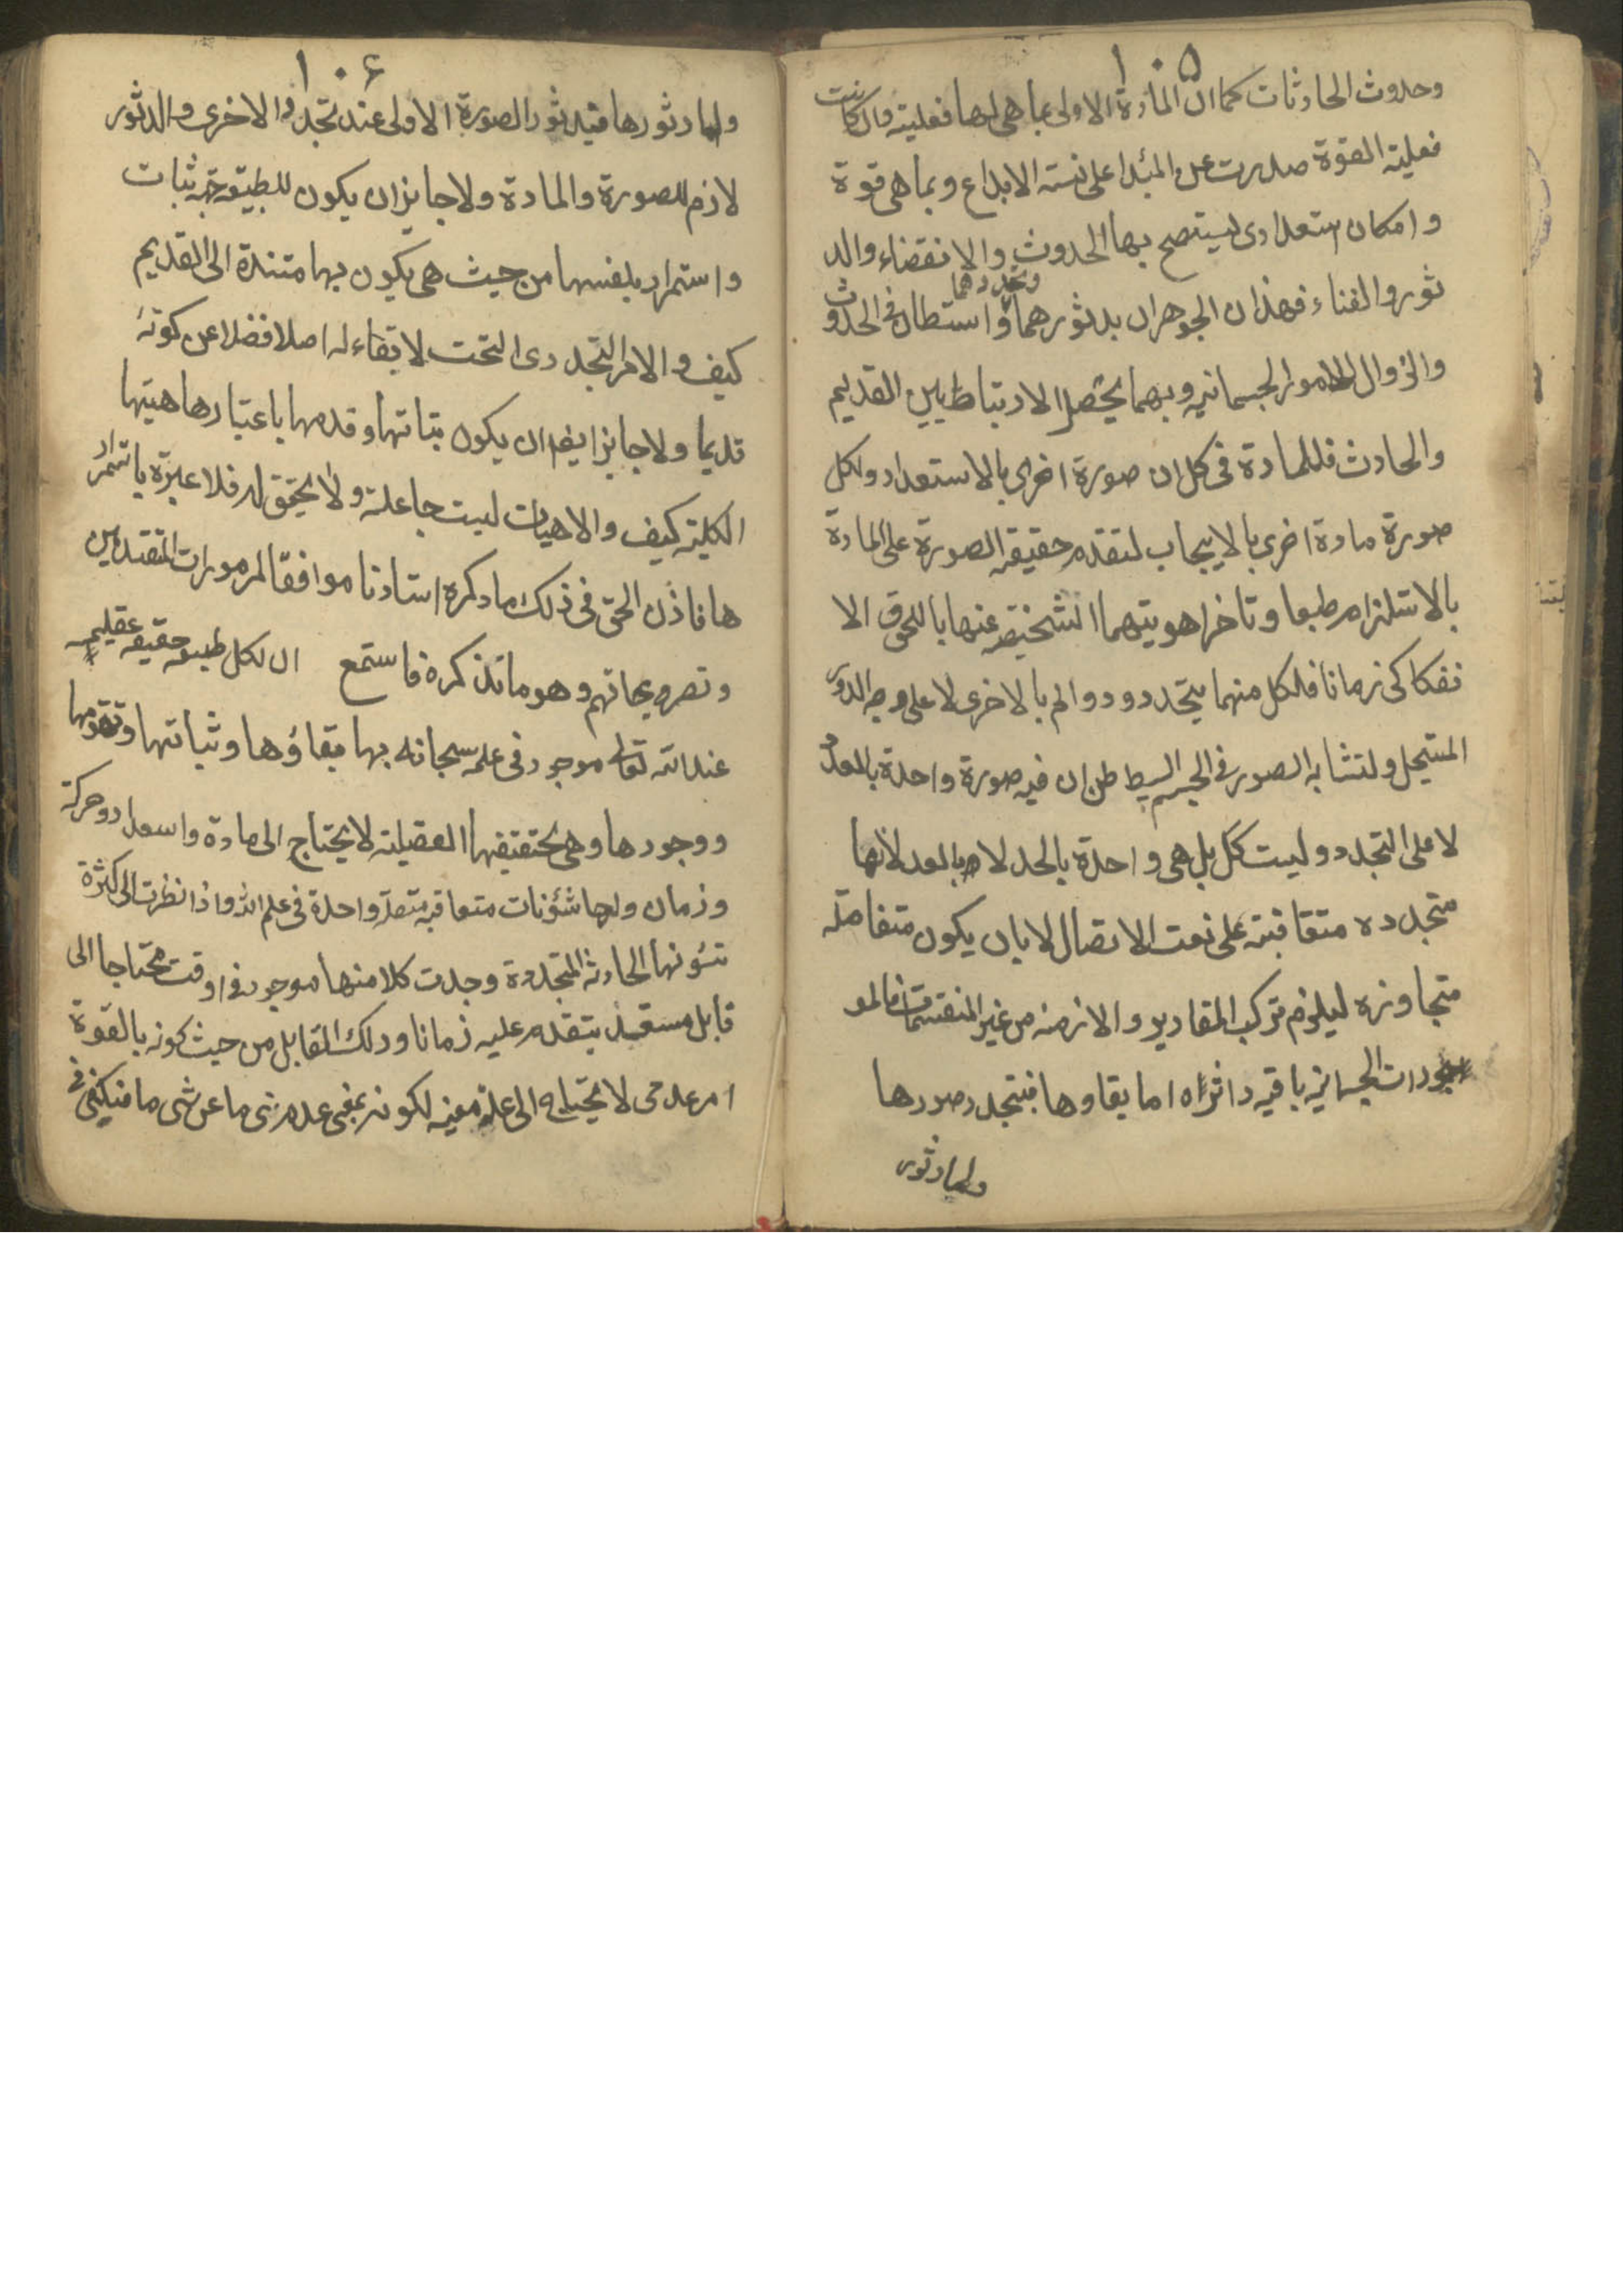 ١٠٥
وحدوث الحادثات كما ان المادة الاولى بما هى لها فعلية وان كانت
فعلية القوة صدرت عن المبدا على نسته الابداع وبما هى قوة
وامكان استعدادى ليستصح بها الحدوث والانقضاء والد
ثور والفناء فهذان الجوهران بدثورهما وتجددهما واسطتان فى الحدوث
والزوال للامور الجسمانيه وبهما يحصل الارتباط بين القديم
والحادث فللمادة فى كل ان صورة اخرى بالاستعداد ولكل
صورة مادة اخرى بالايجاب لتقدم حقيقه الصورة على المادة
بالاستلزام طبعا وتاخر هويتهما الشخصيه عنها باللحوق الا
نفكاكى زمانا فلكل منهما يتجدد ودوام بالاخرى لا على وجه الدور
المستحيل ولتشابه الصور فى الجسم البسيط ظن ان فيه صورة واحدة بالعدد
لا على التجدد وليست كك بل هى واحدة بالحد لا بالعدد لانها
متجدده متعاقبته على نعت الاتصال لا بان يكون متفاصله
متجاوزه ليلزم تركب المقادير والازمنه من غير المنقسمات فالمو
جودات الجسمانيه باقيه داثراه اما بقاوها فبتجدد صورها
واما دثور
١٠٦
واما دثورها فبدثور الصورة الاولى عند تجدد الاخرى والدثور
لازم للصورة والمادة ولا جايز ان يكون للطبيعه جهه ثبات
واستمرار بنفسها من حيث هى يكون بها مستندة الى القديم
كيف والامر التجددى التحت لا بقاء له اصلا فضلا عن كونه
قديما ولا جايز ايضا ان يكون ثباتها وقدمها باعتبار ماهيتها
الكليته كيف والماهيات ليست جاعلة ولا يحقق لها فلا عبرة باستمرار
ها فاذن الحق فى ذلك ما ذكره استادنا موافقا لمرموزات المتقدمين
وتصريحاتهم وهو ما نذكره فاستمع ان لكل طبيعه حقيقه عقليه
عند الله تعالى موجود فى علمه سبحانه بها بقاؤها وثباتها وتقومها
ووجودها وهى بحقيقتها العقيلته لا يحتاج الى مادة واسعداد وحركة
وزمان ولها شئونات متعاقبه متصله واحدة فى علم الله واذا نظرت الى كثرة
شئونها الحادثه المتجددة وجدت كلا منها موجود فى وقت محتاجا الى
قابل مسعد يتقدم عليه زمانا وذلك القابل من حيث كونه بالقوة
امر عدمى لا يحتاج الى علة معينه لكونه بمعنى عدم شى ما عن شى ما فيكفى فى